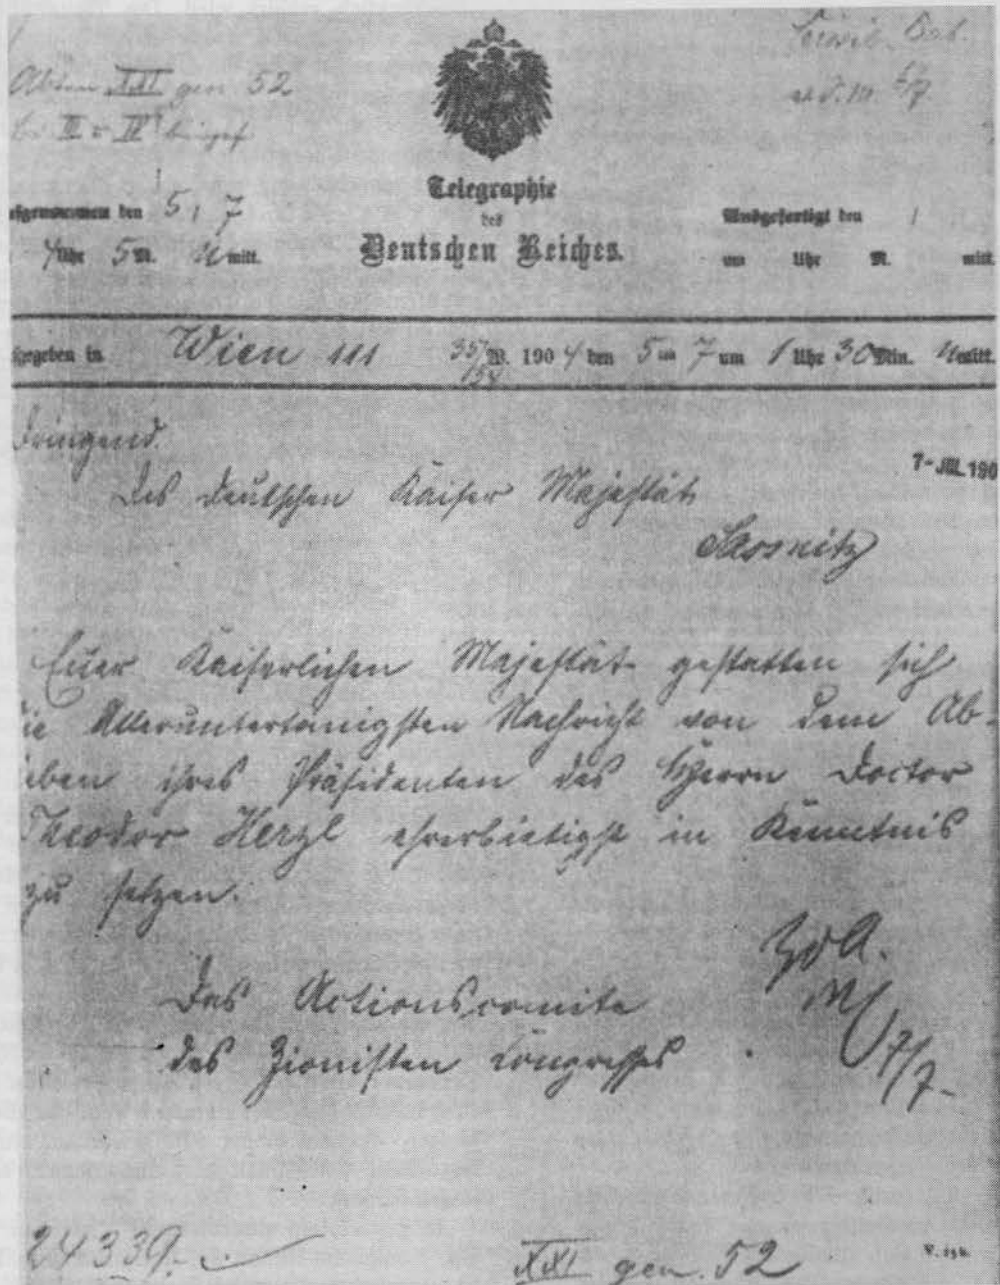 Akten XXI gen 52
III u IV
Telegraphie
des
Deutschen Reiches.
fgenommen den 5 / 7
4 Uhr 5 M. N mitt.
Ausgefertigt den /
um Uhr M. mitt.
gegeben in Wien 111 35/54 W. 1904 den 5 ten 7 um 1 Uhr 30 Min. N mitt.
dringend.
7-JUL.190
Des deutschen Kaiser Majestät
Sassnitz
Euer Kaiserlichen Majestät gestatten sich
die Alleruntertänigsten Nachricht von dem Ab-
leben ihres Präsidenten des Herrn Doctor
Theodor Herzl ehrerbietigst in Kenntnis
zu setzen.
Das Actionscomite
des Zionisten Congresses
ZdA.
7/7-
24339.
XXI gen. 52